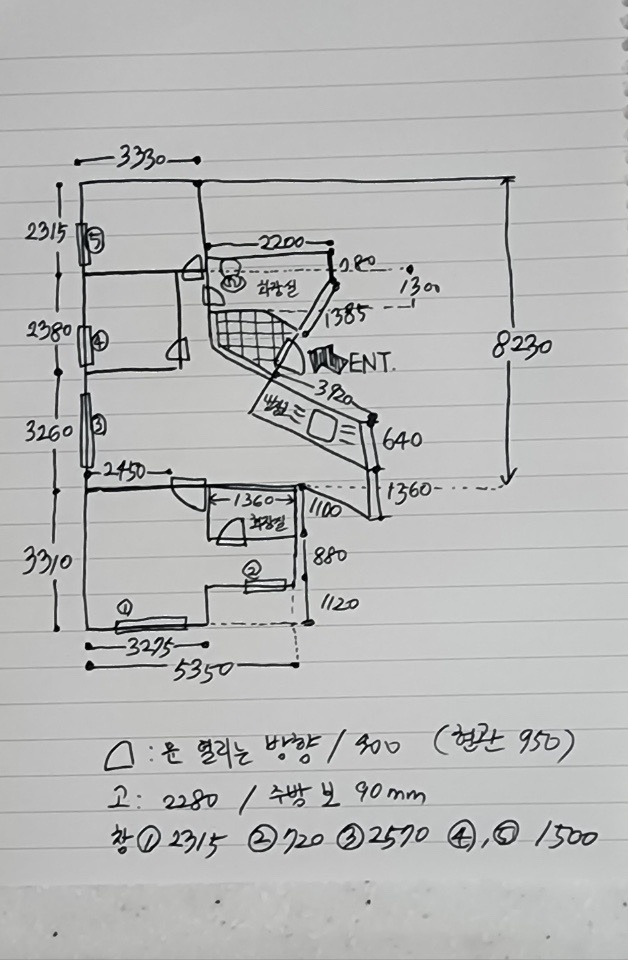 3330
2315
⑤
2200
280
화장실
1300
1385
2380
④
ENT.
8230
3920
3260
③
640
2450
1360
1360
1100
화장실
②
880
3310
①
1120
3275
5350
: 문 열리는 방향 / 900 (현관 950)
고: 2280 / 주방 보 90mm
창 ① 2315 ② 720 ③ 2570 ④, ⑤ 1500